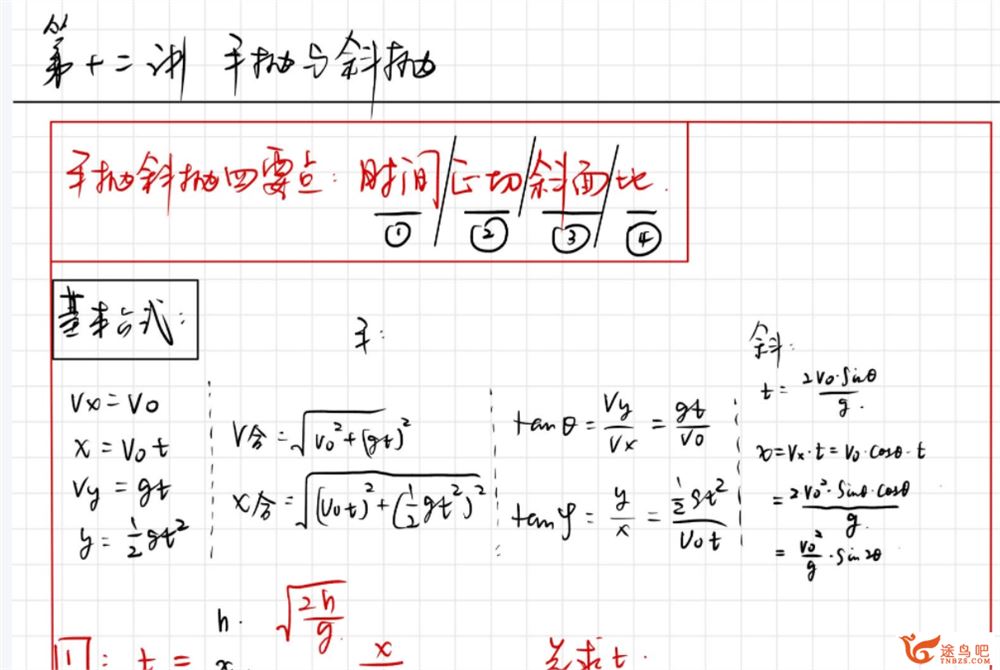 第十二讲 平抛与斜抛
平抛斜抛四要点：时间/正切/斜面/比.
① ② ③ ④
基本公式：
平：
斜：
Vx = V0
x = V0t
Vy = gt
y = 1/2 gt²
V合 = √(V0² + (gt)²)
x合 = √((V0t)² + (1/2 gt²)²)
tanθ = Vy/Vx = gt/V0
tanφ = y/x = (1/2 gt²)/(V0t)
t = 2V0·Sinθ/g.
x = Vx·t = V0·cosθ·t
= 2V0²·Sinθ·cosθ/g.
= V0²/g·Sin2θ
h. √(2h/g)
①: t = x
先求t.
途鸟吧
TNBZS.COM